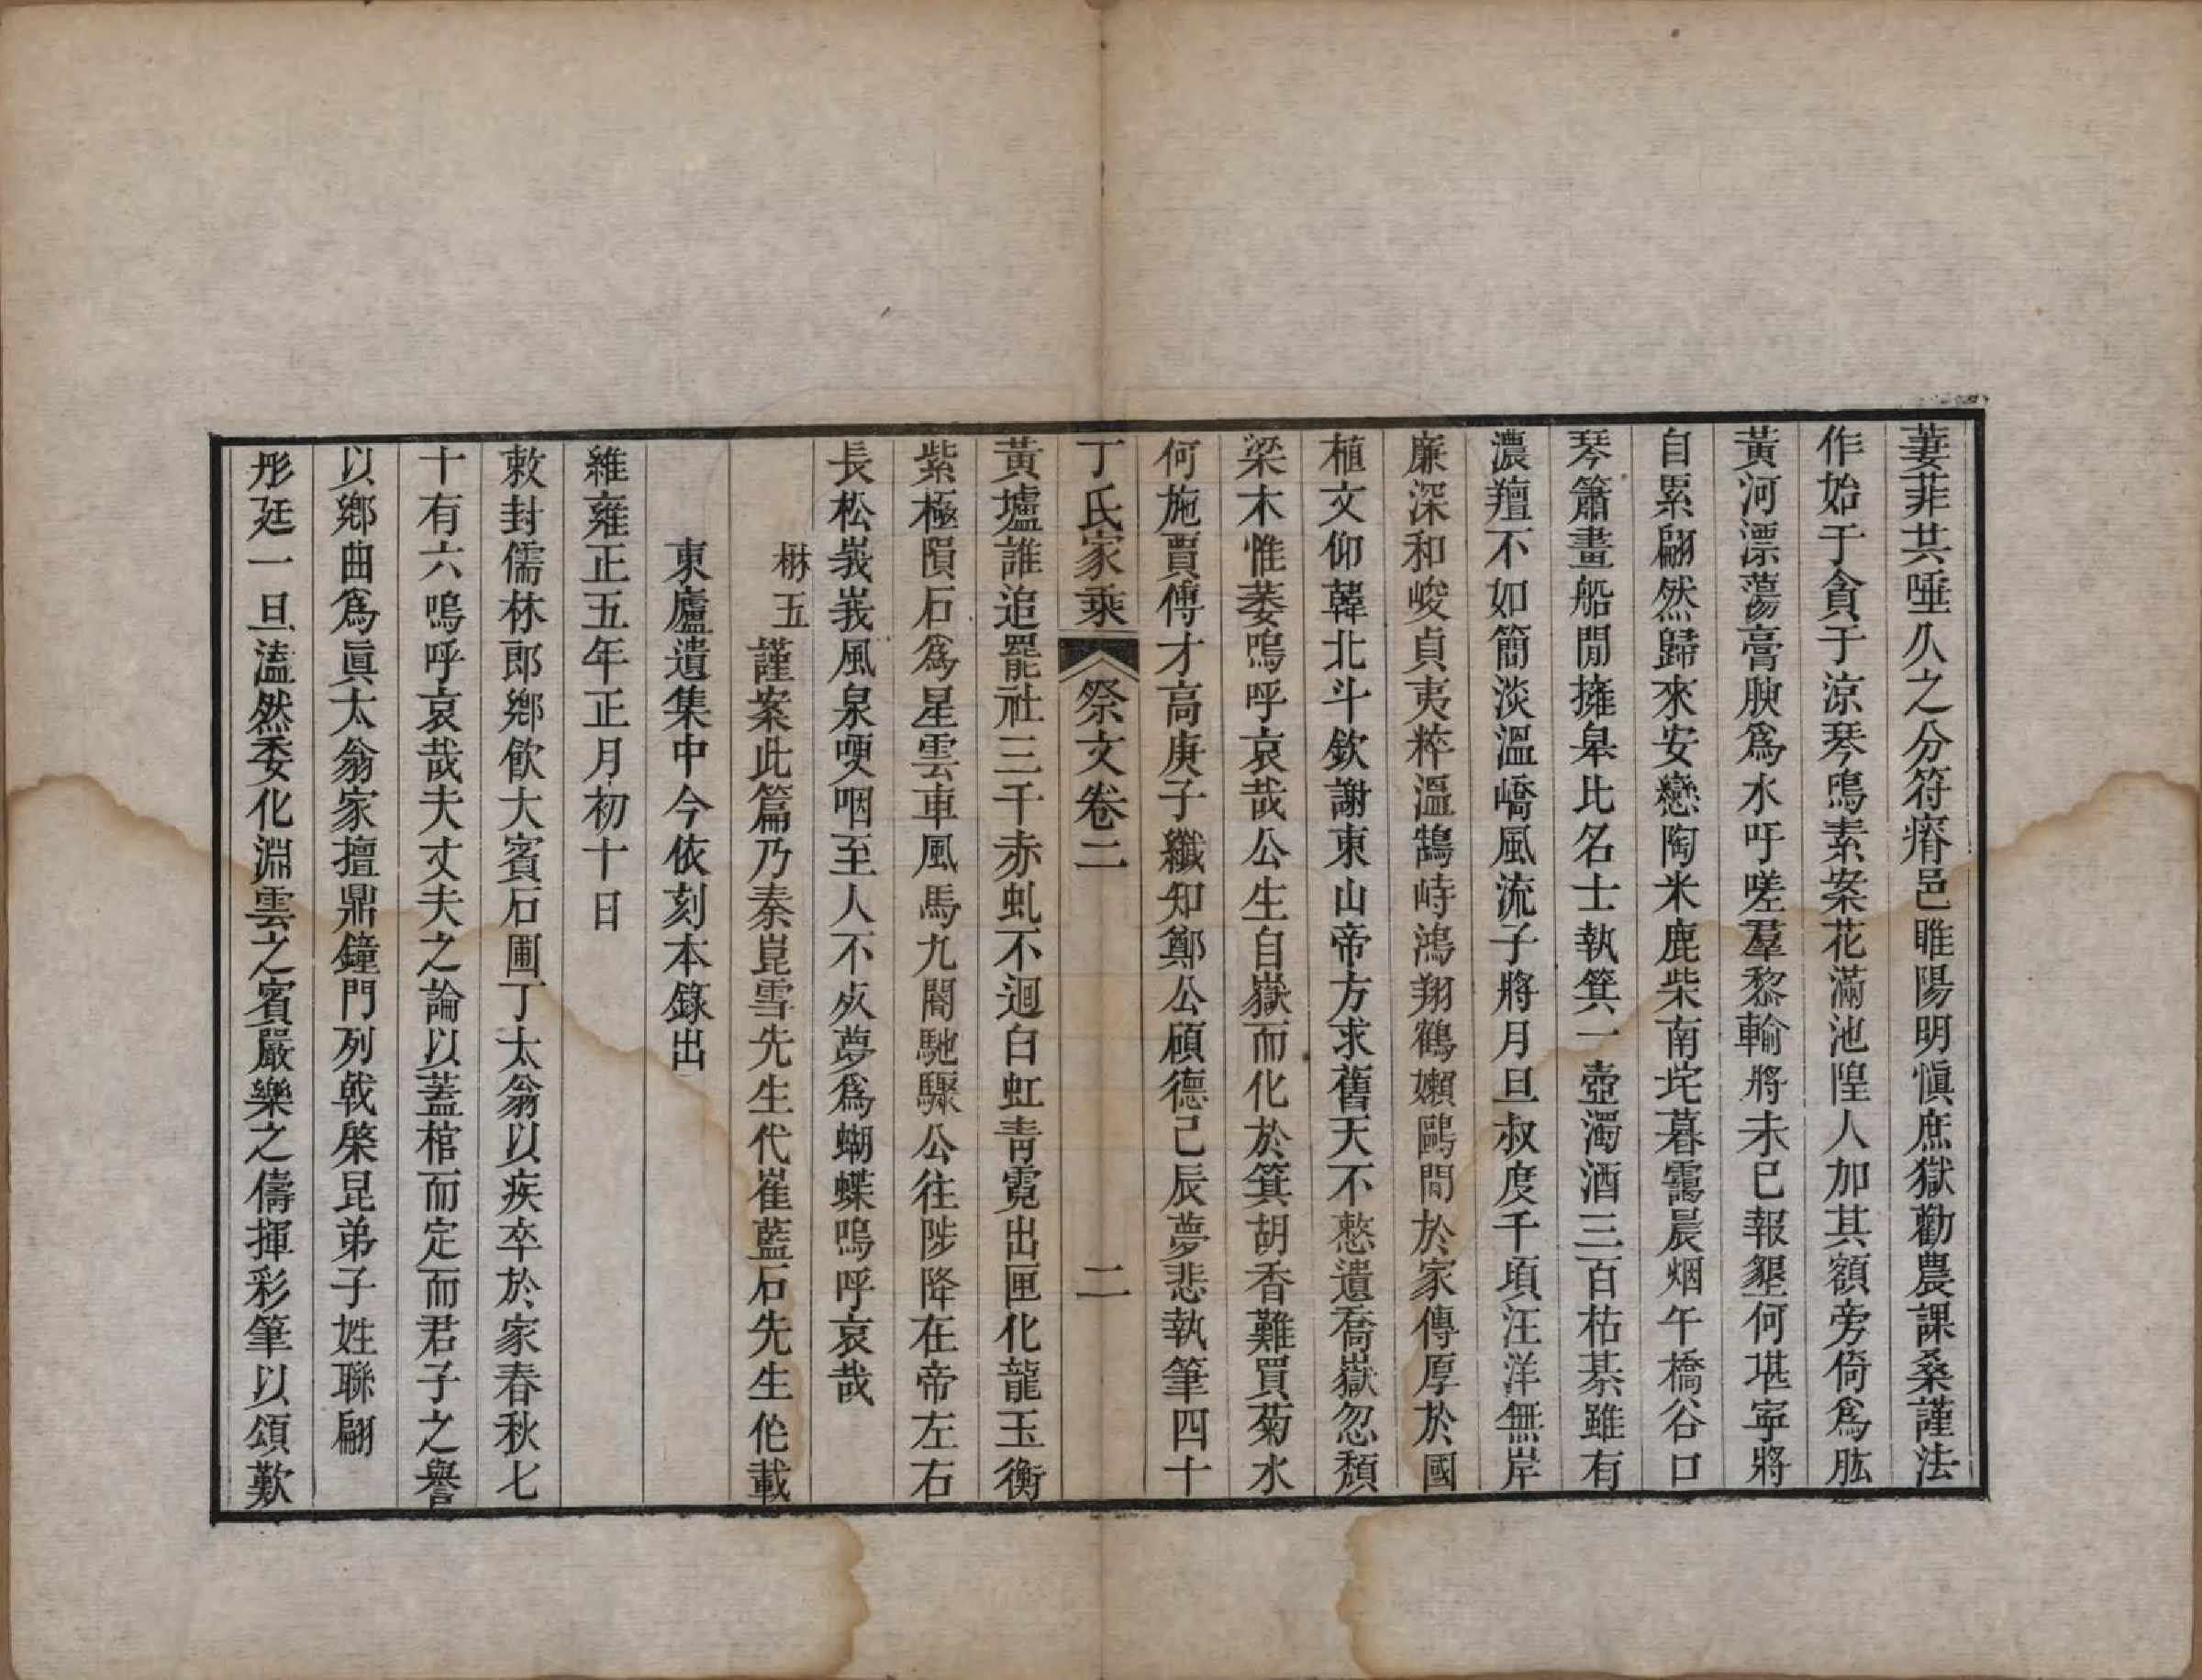 萋菲共唾久之分符瘠邑睢陽明愼庶獄勸農課桑謹法
作始于貪于涼琴鳴素案花滿池隍人加其額旁倚爲肱
黃河漂蕩膏腴爲水吁嗟羣黎輸將未巳報墾何堪寧將
自累翩然歸來安戀陶米鹿柴南垞暮靄晨烟午橋谷口
琴簫畫船閒擁皋比名士執箕一壺濁酒三百枯棊雖有
濃羶不如簡淡溫嶠風流子將月旦叔度千頃汪洋無岸
廉深和峻貞夷粹溫鵠峙鴻翔鶴嬾鷗閒於家傳厚於國
植文仰韓北斗欽謝東山帝方求舊天不憖遺喬嶽忽頹
梁木惟萎嗚呼哀哉公生自嶽而化於箕胡香難買菊水
何施賈傅才高庚子纖知鄭公頎德己辰夢悲執筆四十
丁氏家乘 祭文卷二 二
黃壚誰追罷社三千赤虬不迴白虹青霓出匣化龍玉衡
紫極隕石爲星雲車風馬九閽馳驟公往陟降在帝左右
長松峩峩風泉哽咽至人不夾夢爲蝴蝶嗚呼哀哉
楙五謹案此篇乃秦崑雪先生代崔藍石先生作載
東廬遺集中今依刻本錄出
維雍正五年正月初十日
敕封儒林郎鄉飲大賓石圃丁太翁以疾卒於家春秋七
十有六嗚呼哀哉夫丈夫之論以蓋棺而定而君子之譽
以鄉曲爲眞太翁家擅鼎鐘門列戟棨昆弟子姓聯翩
彤廷一旦溘然委化淵雲之賓嚴樂之儔揮彩筆以頌歎